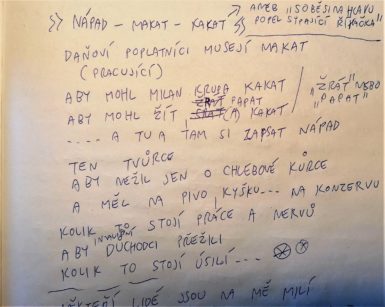 >> NÁPAD - MAKAT - KAKAT <<
ANEB "SOBĚ SI NA HLAVU
POPEL SYPAJÍCÍ
DAŇOVÍ POPLATNÍCI MUSEJÍ MAKAT
(PRACUJÍCÍ)
ABY MOHL MILAN KRUPA KAKAT
ŽRÁT PAPAT
ABY MOHL ŽÍT (A) KAKAT
"ŽRÁT" NEBO
"PAPAT"
.... A TU A TAM SI ZAPSAT NÁPAD
TEN TVŮRCE
ABY NEŽIL JEN O CHLEBOVÉ KŮRCE
A MĚL NA PIVO, KYŠKU... NA KONZERVU
KOLIK TO STOJÍ PRÁCE A NERVŮ
ABY INVALIDNÍ DŮCHODCI PŘEŽILI
KOLIK TO STOJÍ ÚSILÍ ...
NĚKTEŘÍ LIDÉ JSOU NA MĚ MILÍ